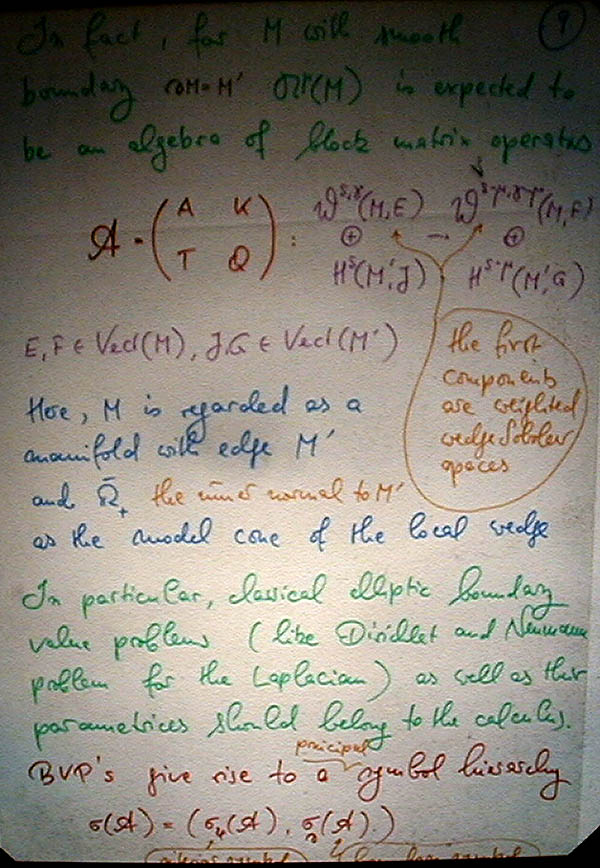 9
In fact, for M with smooth
boundary ∂M = M' (M) is expected to
be an algebra of block matrix operators
A = ( A K : 𝒲^{s,γ}(M,E) → 𝒲^{s-μ,γ-μ}(M,F)
⊕ ⊕
T Q ) H^s(M',J) H^{s-μ}(M',G)
E, F ∈ Vect(M), J, G ∈ Vect(M')
the first
components
are weighted
wedge Sobolev
spaces
Here, M is regarded as a
manifold with edge M'
and R̄₊ the inner normal to M'
as the model cone of the local wedge
In particular, classical elliptic boundary
value problems (like Dirichlet and Neumann
problem for the Laplacian) as well as their
parametrices should belong to the calculus.
principal
BVP's give rise to a symbol hierarchy
σ(A) = (σ_ψ(A), σ_∂(A))